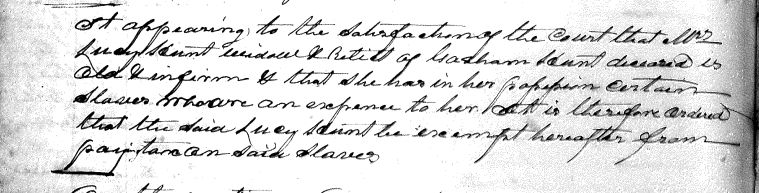 It appearing to the satisfaction of the Court that Mrs
Lucy Hunt widow & Relict of Gasham Hunt deceased is
old & infirm & that she has in her possession certain
Slaves who are an expence to her. It is therefore ordered
that the said Lucy Hunt be exempt hereafter from
pay tax on said Slaves